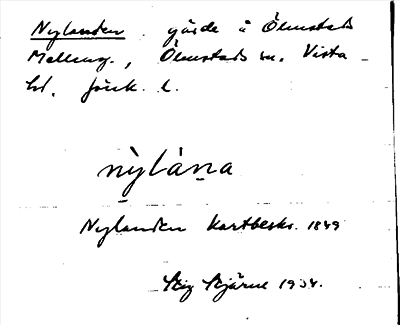 Nylanden gärde å Ölmstads
Mellang., Ölmstads sn. Vista
hd. Jönk. l.
nỳlàn̲a
Nylanden Kartbeskr. 1849
Stig Bjärne 1934.